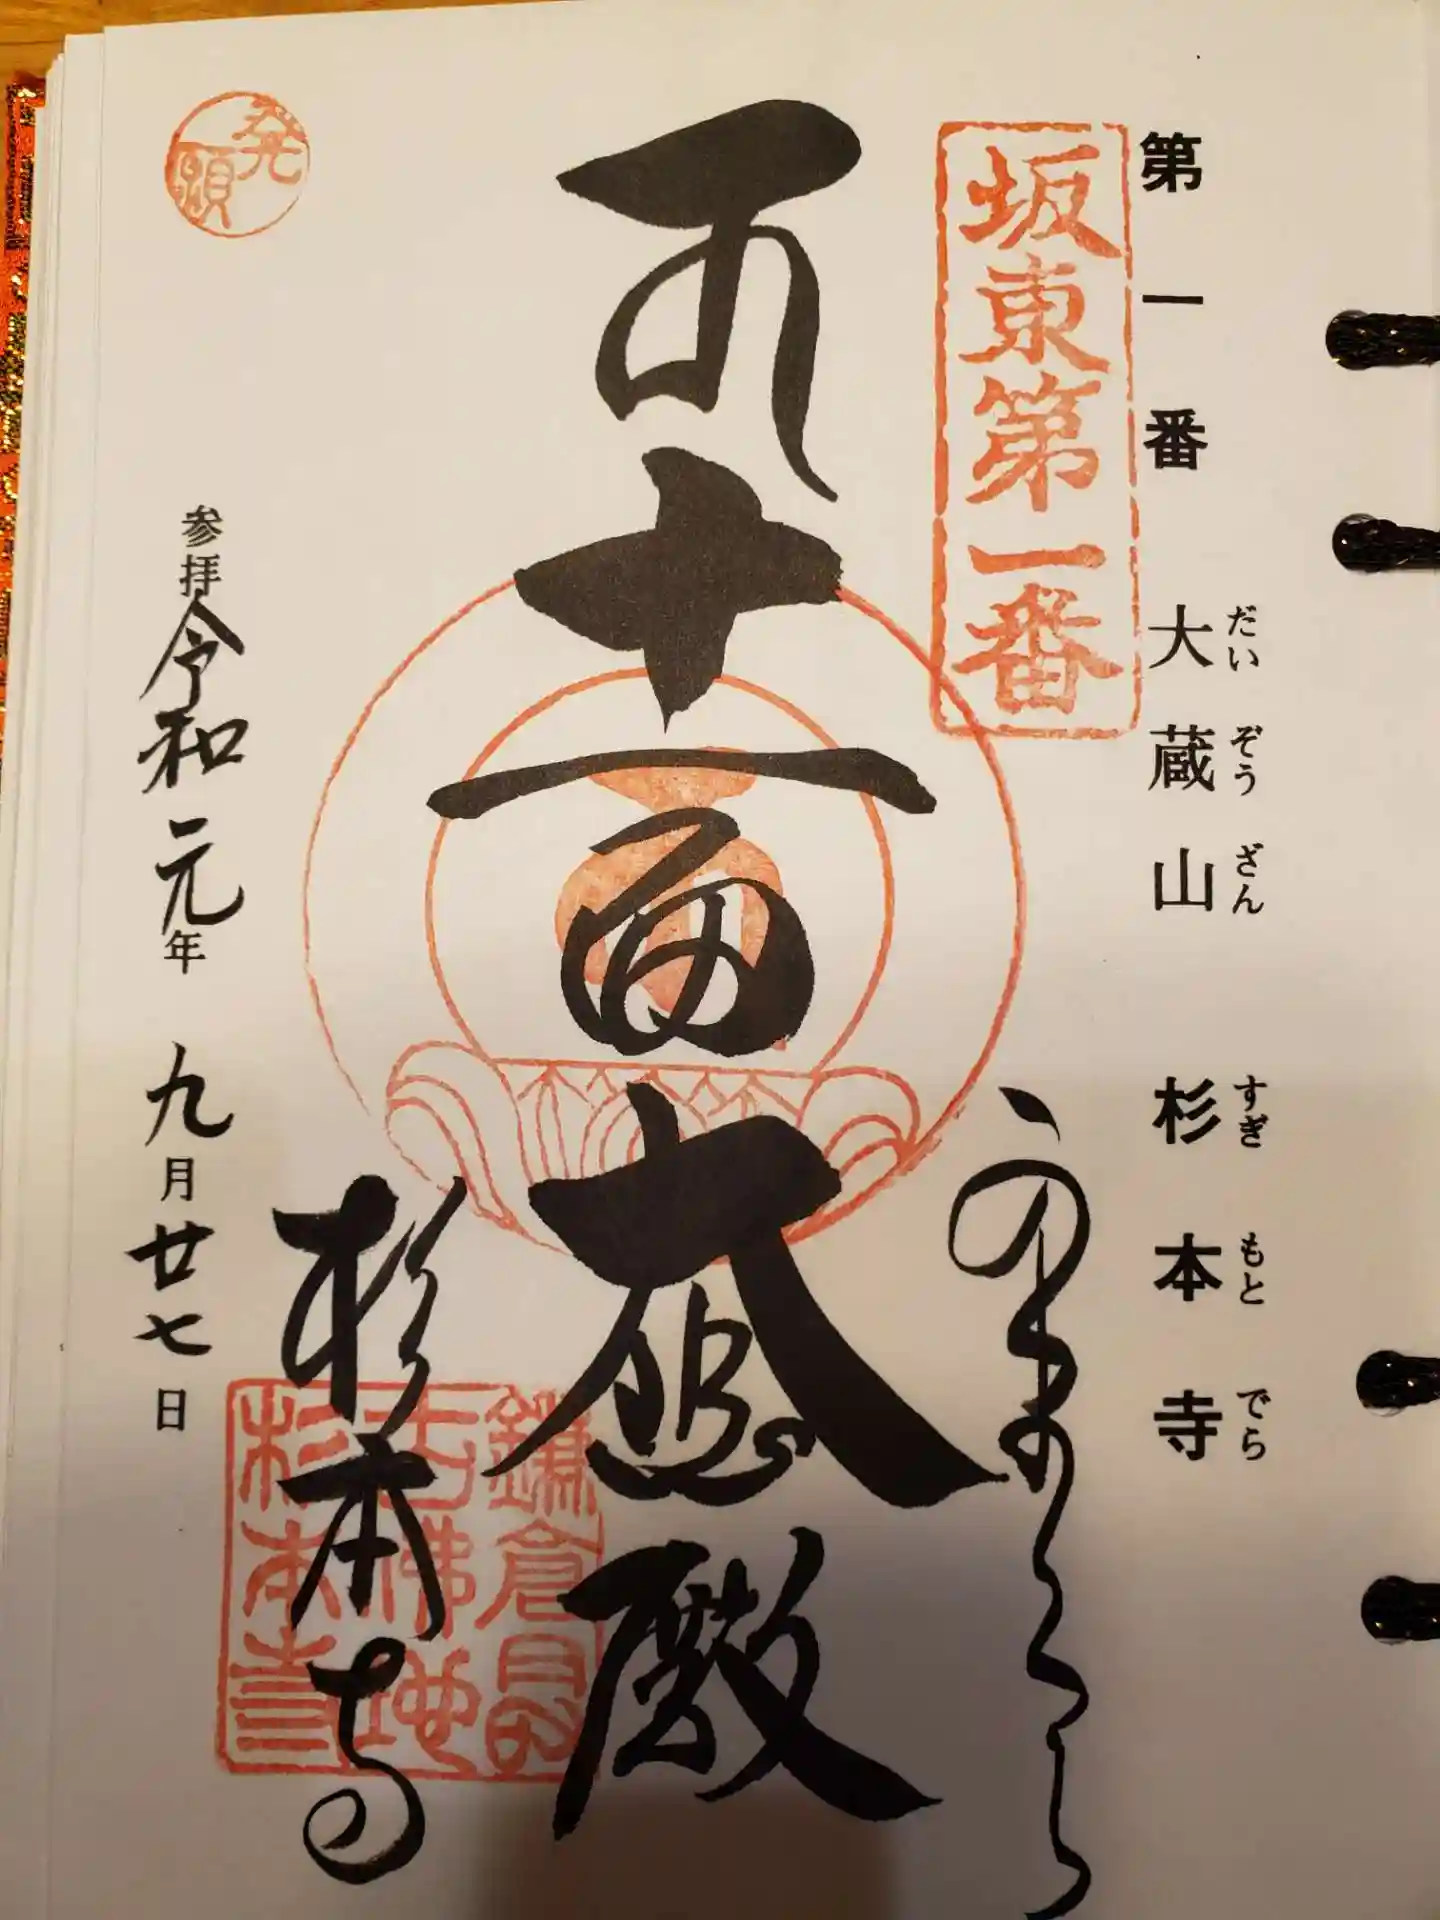 第一番 大蔵山 杉本寺
だいぞうざん すぎもとでら
坂東第一番
かまくら
十一面大悲殿
杉本寺
鎌倉最
古佛地
杉本寺
参拝 令和元年 九月廿七日
発願